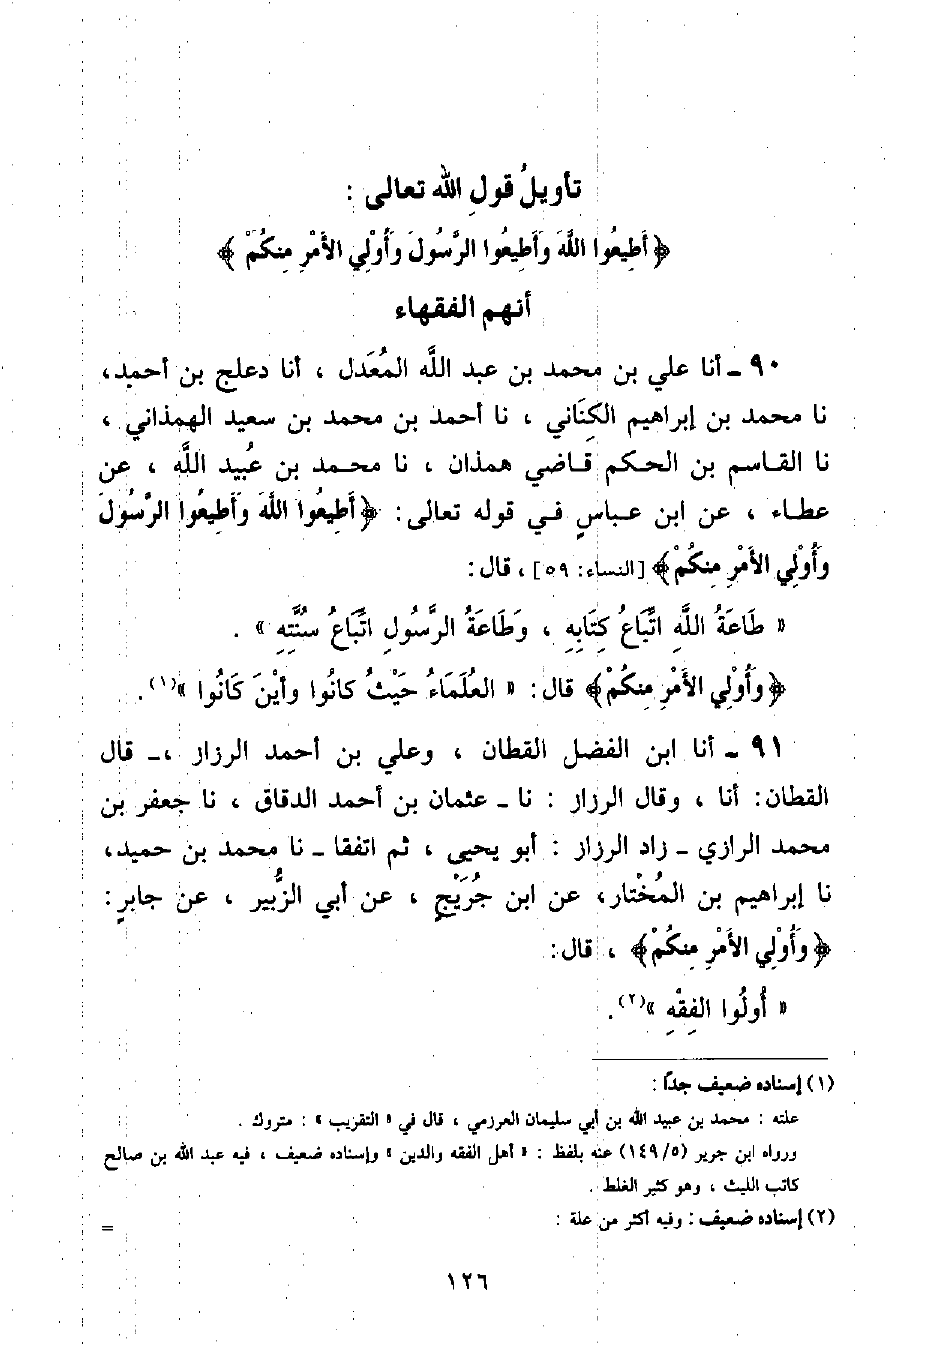 تأويلُ قولِ الله تعالى :
﴿ أَطِيعُوا اللَّهَ وَأَطِيعُوا الرَّسُولَ وَأُوْلِي الأَمْرِ مِنكُمْ ﴾
أنهم الفقهاء
٩٠ ـ أنا علي بن محمد بن عبد اللَّه المُعَدل ، أنا دعلج بن أحمد،
نا محمد بن إبراهيم الكِنَاني ، نا أحمد بن محمد بن سعيد الهمذاني ،
نا القاسم بن الحكم قاضي همذان ، نا محمد بن عُبيد اللَّه ، عن
عطاء ، عن ابن عباسٍ في قوله تعالى: ﴿أَطِيعُوا اللَّهَ وَأَطِيعُوا الرَّسُولَ
وَأُوْلِي الأَمْرِ مِنكُمْ﴾ [النساء: ٥٩] ، قال:
« طَاعَةُ اللَّهِ اتِّبَاعُ كِتَابِهِ ، وَطَاعَةُ الرَّسُولِ اتِّبَاعُ سُنَّتِهِ » .
﴿وَأُوْلِي الأَمْرِ مِنكُمْ﴾ قال: « العُلَمَاءُ حَيْثُ كانُوا وأَيْنَ كَانُوا »(١) .
٩١ ـ أنا ابن الفضل القطان ، وعلي بن أحمد الرزاز ،ـ قال
القطان: أنا ، وقال الرزاز : نا ـ عثمان بن أحمد الدقاق ، نا جعفر بن
محمد الرازي ـ زاد الرزاز : أبو يحيى ، ثم اتفقا ـ نا محمد بن حميد،
نا إبراهيم بن المُخْتار، عن ابن جُرَيْجٍ ، عن أبي الزُّبير ، عن جابرٍ :
﴿وَأُوْلِي الأَمْرِ مِنكُمْ﴾ ، قال:
« أُولُوا الفِقْهِ »(٢) .
(١) إسناده ضعيف جدًا :
علته : محمد بن عبيد الله بن أبي سليمان العرزمي ، قال في « التقريب » : متروك .
ورواه ابن جرير (١٤٩/٥) عنه بلفظ : « أهل الفقه والدين » وإسناده ضعيف ، فيه عبد الله بن صالح
كاتب الليث ، وهو كثير الغلط .
(٢) إسناده ضعيف : وفيه أكثر من علة :
=
١٢٦